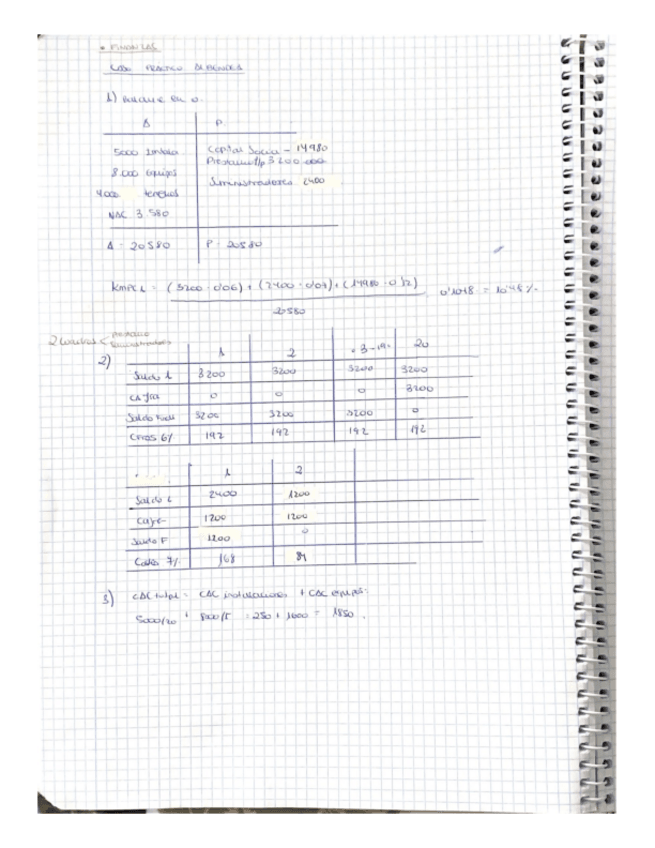 • FINANZAS
CASO PRÁCTICO
1) Balance en 0.
A P.
5000 Capital Social - 14980
Préstamo l/p 3200 000
8.000 equipos
Suministradores 2400
4.000 terrenos
NAC 3.580
A = 20580 P = 20580
= (3200 · 0'06) + (2400 · 0'07) + (14980 · 0'12) 0'1048 = 10'48 %.
20580
2 < préstamo
suministradores
2) 1 2 · 3-19· 20
Saldo I 3200 3200 3200 3200
0 0 0 3200
Saldo Final 3200 3200 3200 0
Costes 6% 192 192 192 192
1 2
Saldo I 2400 1200
1200 1200
Saldo F 1200 0
Costes 7% 168 84
3) CAC total = CAC instalaciones + CAC equipos =
5000/20 + 8000/5 = 250 + 1600 = 1850.